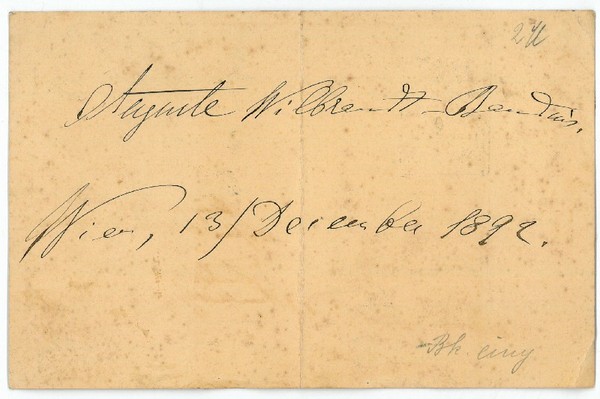 Auguste Wilbrandt-Baudius.
Wien, 13/December 1892.